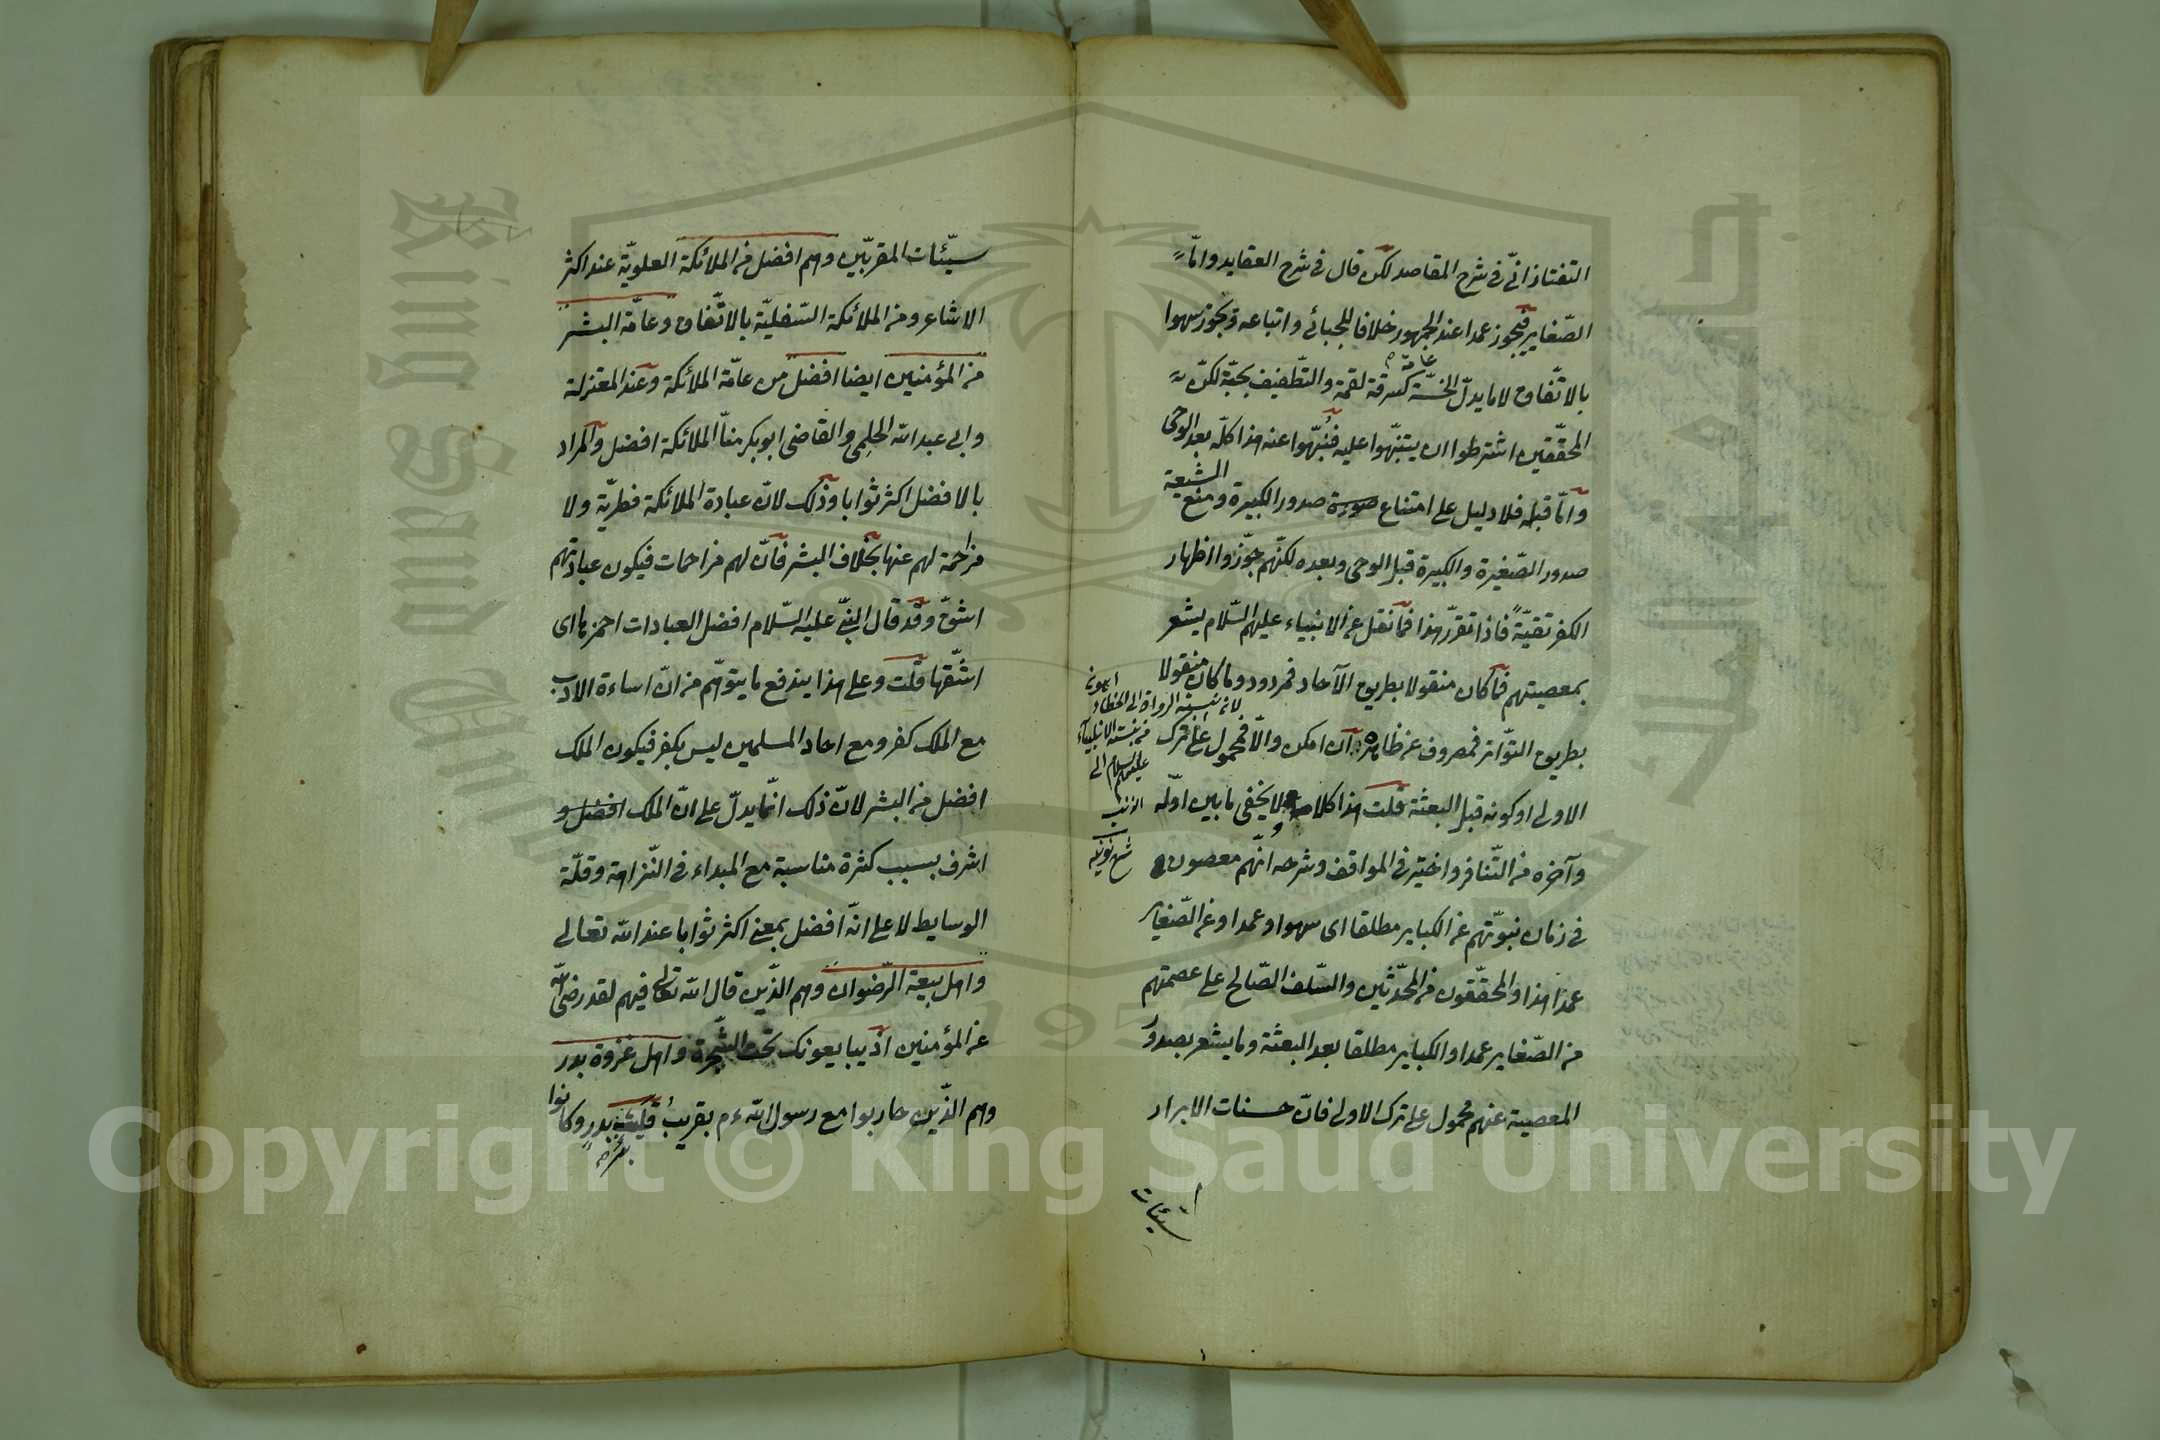 التفتازانيّ في شرح المقاصد لكن قال في شرح العقايد وامّا
الصّغاير فيجوز عمدا عند الجمهور خلافا للجبائي واتباعه ويجوز سهوا
بالاتّفاق لا ما يدلّ الخسّة كسرقة لقمة والتّطفيف بحبّة لكنّ
المحقّقين اشترطوا ان يتنبّهوا عليه فنبّهوا عنه هذا كلّه بعد الوحي
وامّا قبله فلا دليل على امتناع صدور الكبيرة ومنع الشيعة
صدور الصّغيرة والكبيرة قبل الوحي وبعده لكنّهم جوّزوا اظهار
الكفر تقيّة فاذا تقرّر هذا فما نقل عن الانبياء عليهم السّلام يشعر
بمعصيتهم فما كان منقولا بطريق الآحاد فمردود وما كان منقولا
بطريق التّواتر فمصروف عن ظاهره ان امكن والّا فمحمول على ترك
الاولى او كونه قبل البعثة قلت هذا كلام لا يخفى ما بين اوّله
وآخره من التّنافر واختير في المواقف وشرحه انّهم معصومون
في زمان نبوّتهم عن الكباير مطلقا اى سهوا وعمدا وعن الصّغاير
عمدا هذا والمحقّقون من المحدّثين والسّلف الصّالح على عصمتهم
من الصّغاير عمدا والكباير مطلقا بعد البعثة وما يشعر بصدور
المعصية عنهم محمول على ترك الاولى فانّ حسنات الابرار
سيّئات
عامة
لان نسبة الرواة الى الخطاء اهون
من نسبة الانبياء
عليهم السلام الى
الذنب
شرح نونيه
سيّئات المقرّبين وهم افضل من الملائكة العلويّة عند اكثر
الاشاعر ومن الملائكة السّفليّة بالاتّفاق وعامّة البشر
من المؤمنين ايضا افضل من عامّة الملائكة وعند المعتزلة
وابى عبد الله الحلِمي والقاضى ابو بكر منّا الملائكة افضل والمراد
بالافضل اكثر ثوابا وذلك لانّ عبادة الملائكة فطريّة ولا
مزاحمة لهم عنها بخلاف البشر فانّ لهم مزاحمات فيكون عبادتهم
اشقّ وقد قال النبيّ عليه السّلام افضل العبادات احمزها اى
اشقّها قلت وعلى هذا يندفع ما يتوهّم من انّ اساءة الادب
مع الملك كفر ومع احاد المسلمين ليس بكفر فيكون الملك
افضل من البشر لانّ ذلك انّما يدلّ على انّ الملك افضل و
اشرف بسبب كثرة مناسبة مع المبداء في النّزاهة وقلّة
الوسايط لا على انّه افضل بمعنى اكثر ثوابا عند الله تعالى
واهل بيعة الرّضوان وهم الذّين قال الله تعالى فيهم لقد رضى الله
عن المؤمنين اذ يبايعونك تحت الشّجرة واهل غزوة بدر
وهم الذّين حاربوا مع رسول الله ءم بقرب بدر وكانوا